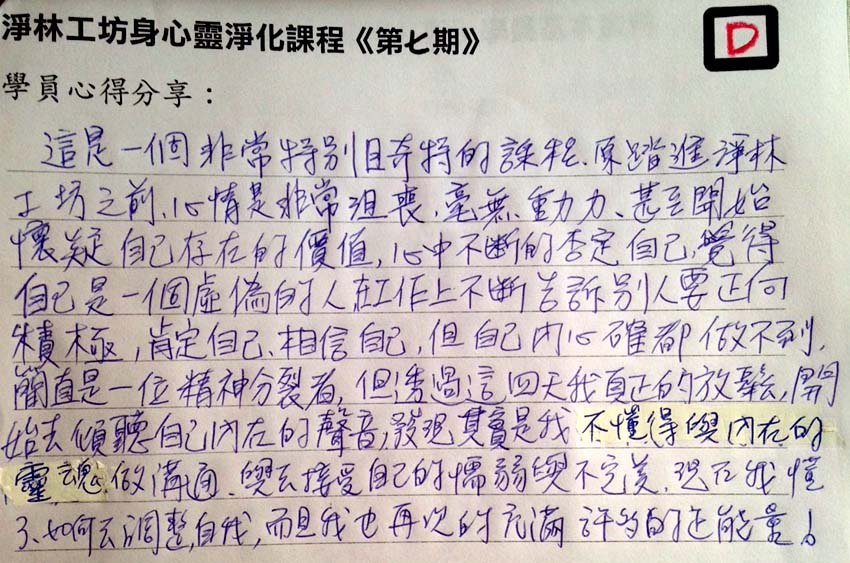 淨林工坊身心靈淨化課程《第七期》
D
學員心得分享：
這是一個非常特別且奇特的課程、原踏進淨林
工坊之前、心情是非常沮喪、毫無動力、甚至開始
懷疑自己存在的價值，心中不斷的否定自己，覺得
自己是一個虛偽的人在工作上不斷告訴別人要正向
積極，肯定自己、相信自己，但自己內心確都做不到，
簡直是一位精神分裂者，但透過這四天我真正的放鬆，開
始去傾聽自己內在的聲音，發現其實是我不懂得與內在的
靈魂做溝通、與去接受自己的懦弱與不完美，現在我懂
了、如何去調整自我，而且我也再次的充滿許多的正能量！